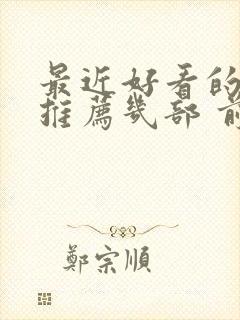 最近好看的
推薦幾部 前
鄭宗順